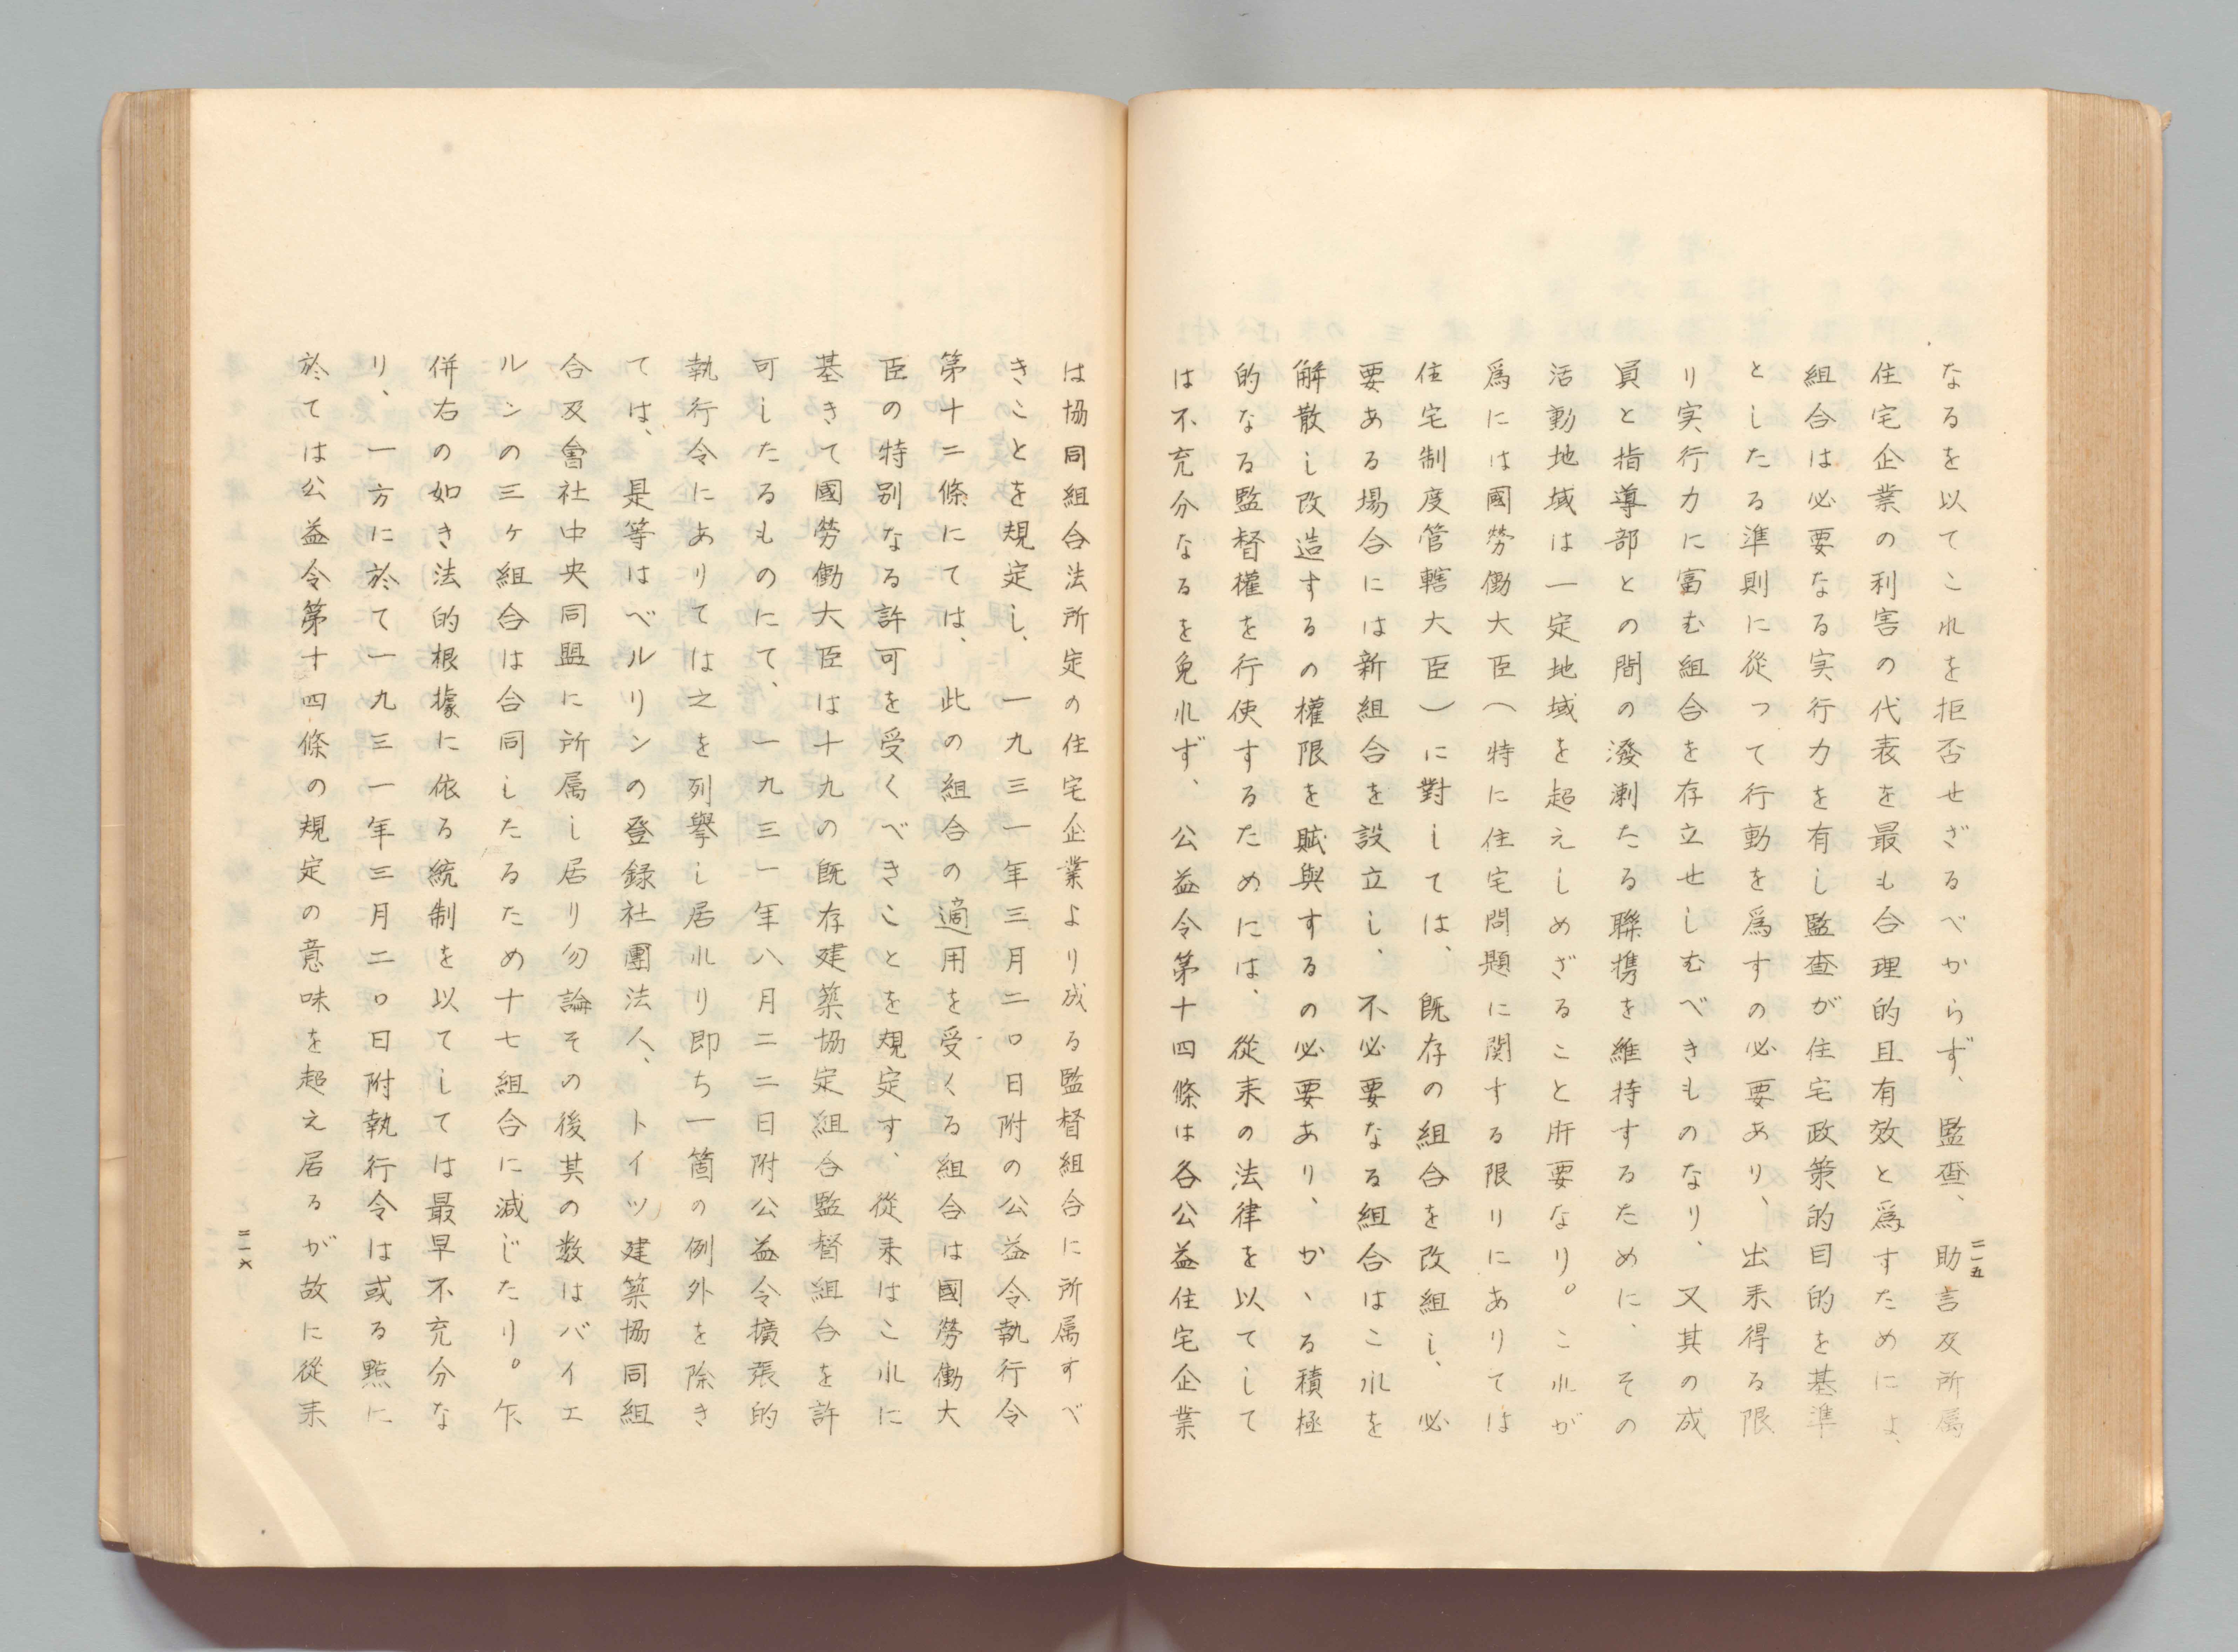 なるを以てこれを拒否せざるべからず、監査、助言及所属
住宅企業の利害の代表を最も合理的且有效と爲すためには、
組合は必要なる実行力を有し監査が住宅政策的目的を基準
としたる準則に從つて行動を爲すの必要あり、出来得る限
り実行力に富む組合を存立せしむべきものなり、又其の成
員と指導部との間の潑溂たる聯携を維持するために、その
活動地域は一定地域を超えしめざること肝要なり。これが
爲には國勞働大臣（特に住宅問題に関する限りにありては
住宅制度管轄大臣）に對しては、既存の組合を改組し、必
要ある場合には新組合を設立し、不必要なる組合はこれを
解散し改造するの權限を賦與するの必要あり、かゝる積極
的なる監督權を行使するためには、從来の法律を以てして
は不充分なるを免れず、公益令第十四條は各公益住宅企業
二一五
は協同組合法所定の住宅企業より成る監督組合に所属すべ
きことを規定し、一九三一年三月二〇日附の公益令執行令
第十二條にては、此の組合の適用を受くる組合は國勞働大
臣の特別なる許可を受くべきことを規定す、從来はこれに
基きて國勞働大臣は十九の既存建築協定組合監督組合を許
可したるものにて、一九三一年八月二二日附公益令擴張的
執行令にありては之を列擧し居れり即ち一箇の例外を除き
ては、是等はベルリンの登録社團法人、トイツ建築協同組
合及會社中央同盟に所属し居り勿論その後其の数はバイエ
ルンの三ヶ組合は合同したるため十七組合に減じたり。乍
併右の如き法的根據に依る統制を以てしては最早不充分な
り、一方に於て一九三一年三月二〇日附執行令は或る點に
於ては公益令第十四條の規定の意味を超え居るが故に從来
二一六